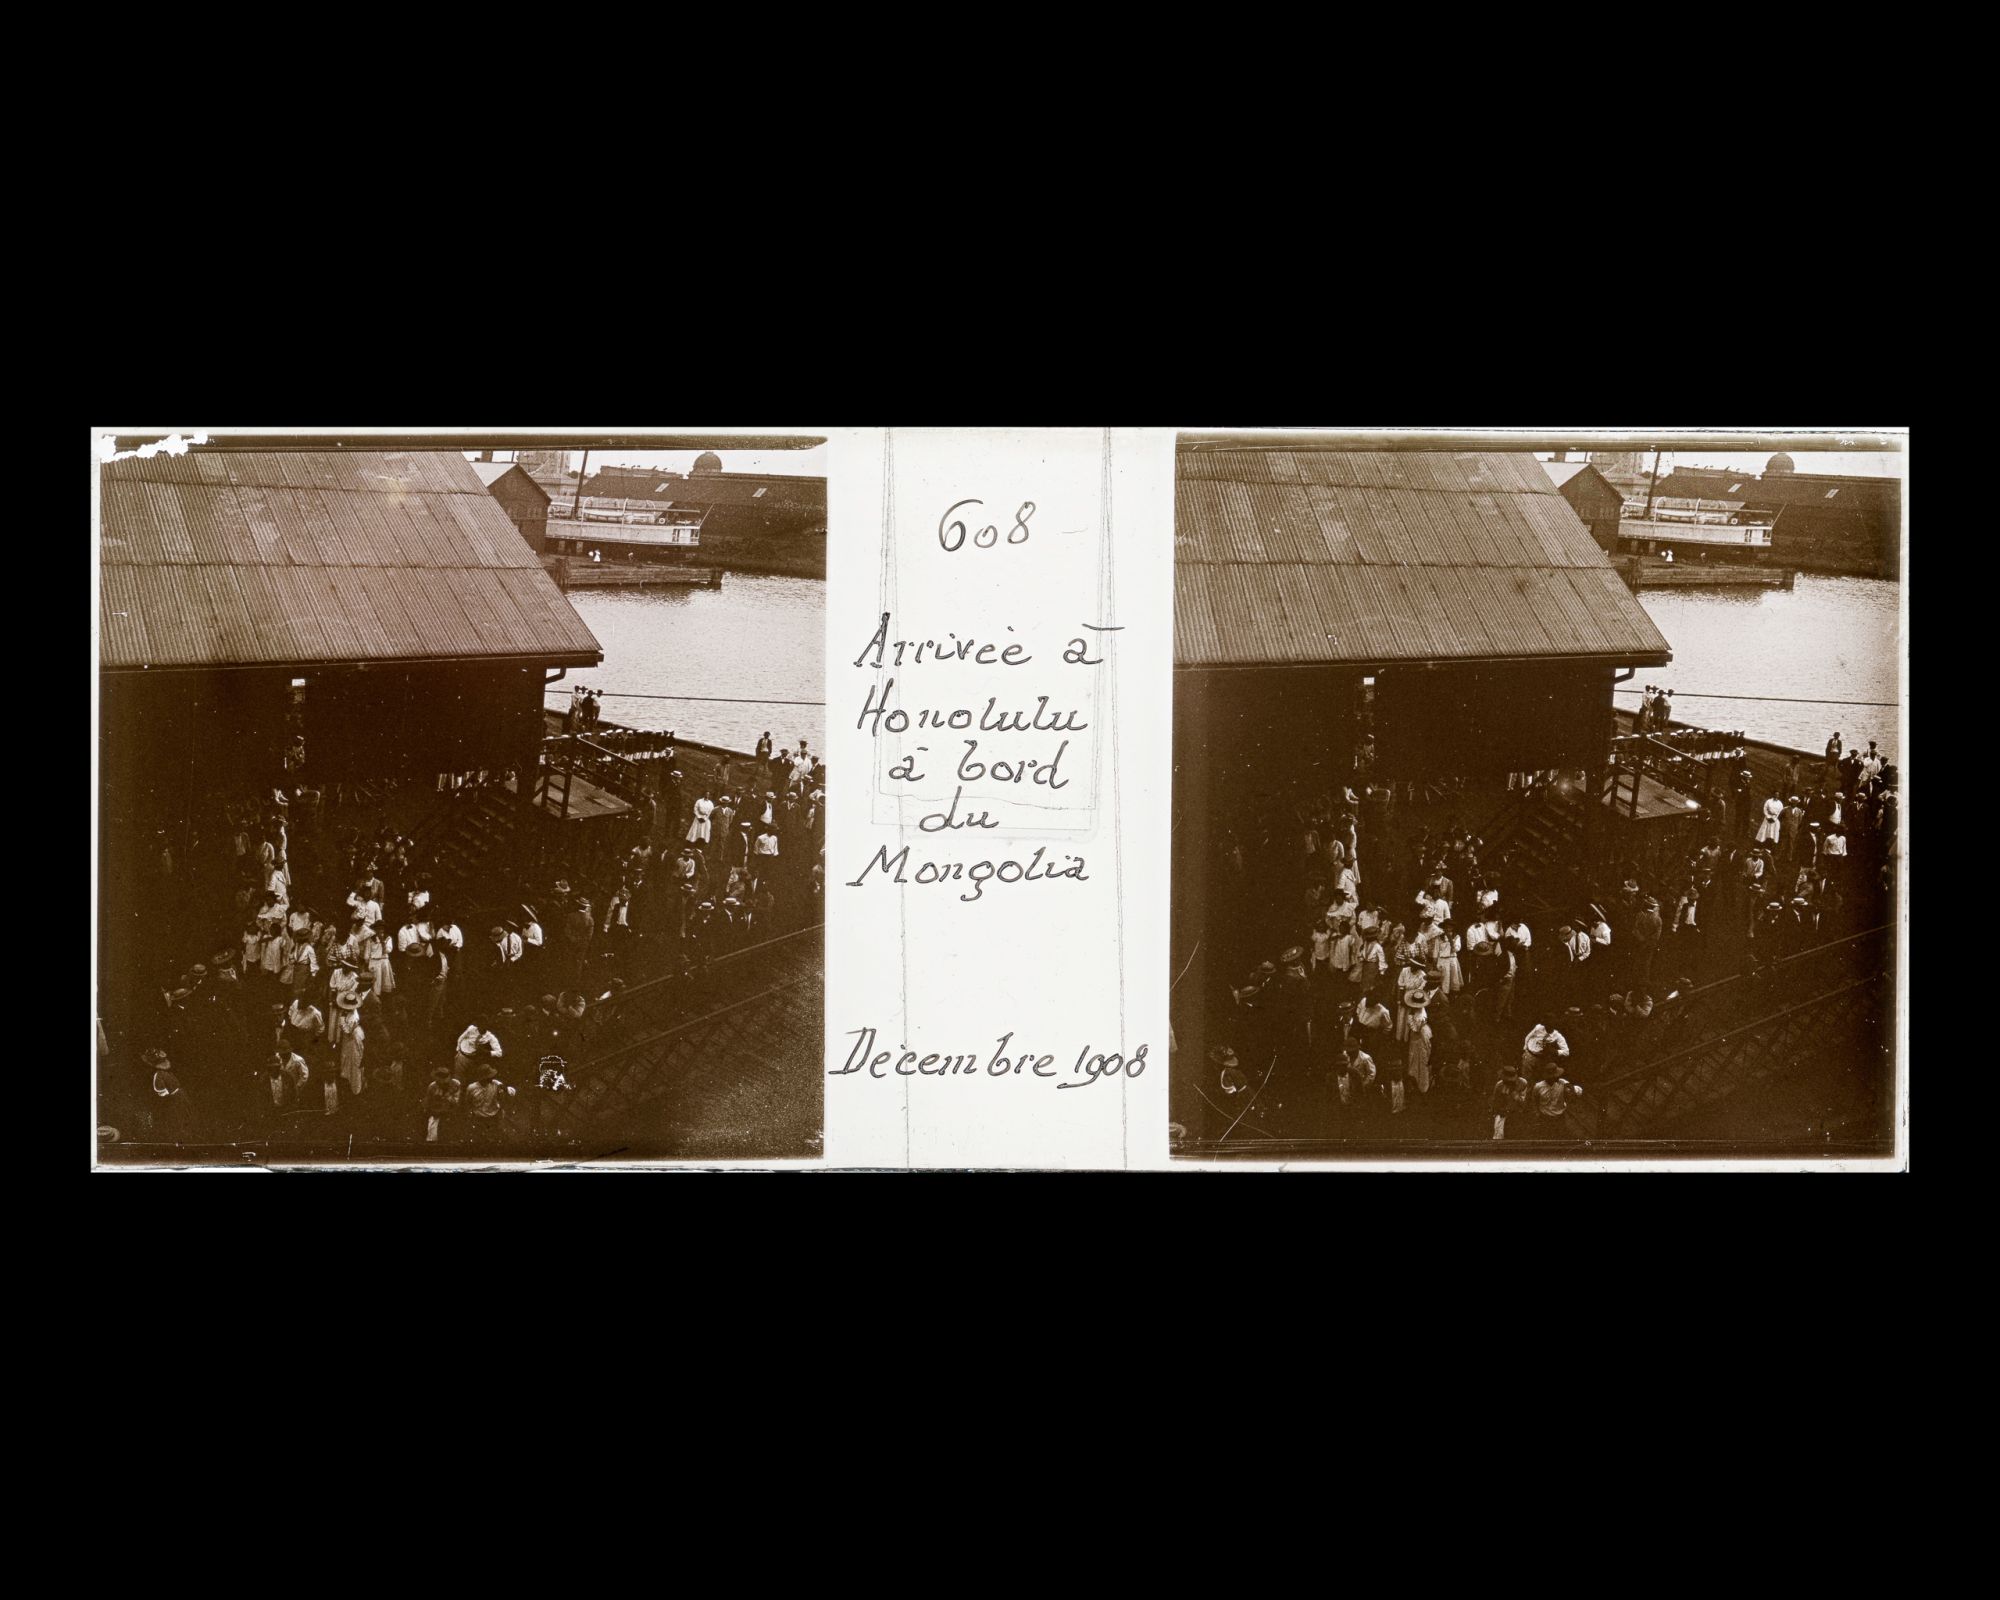 608
Arrivée à
Honolulu
à bord
du
Mongolia
Décembre 1908